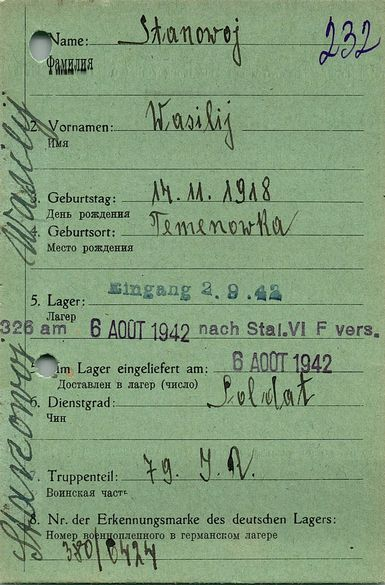 Name: Stanowoj 232
Фамилия
2. Vornamen: Wasilij
Имя
3. Geburtstag: 17.11.1918
День рождения
4. Geburtsort: Temenowka
Место рождения
Eingang 2.9.42
5. Lager:
Лагер
326 am 6 AOÛT 1942 nach Stal. VI F vers.
im Lager eingeliefert am: 6 AOÛT 1942
Доставлен в лагер (число)
6. Dienstgrad: Soldat
Чин
7. Truppenteil: 79. J.R.
Воинская часть
8. Nr. der Erkennungsmarke des deutschen Lagers:
Номер военнопленного в германском лагере
Stanowoj Wasilij